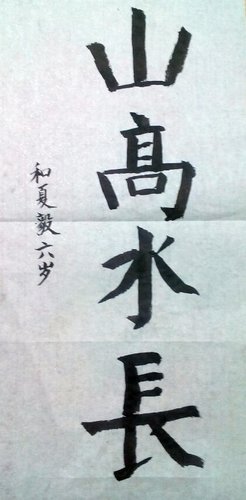 山髙水長
和夏毅六岁